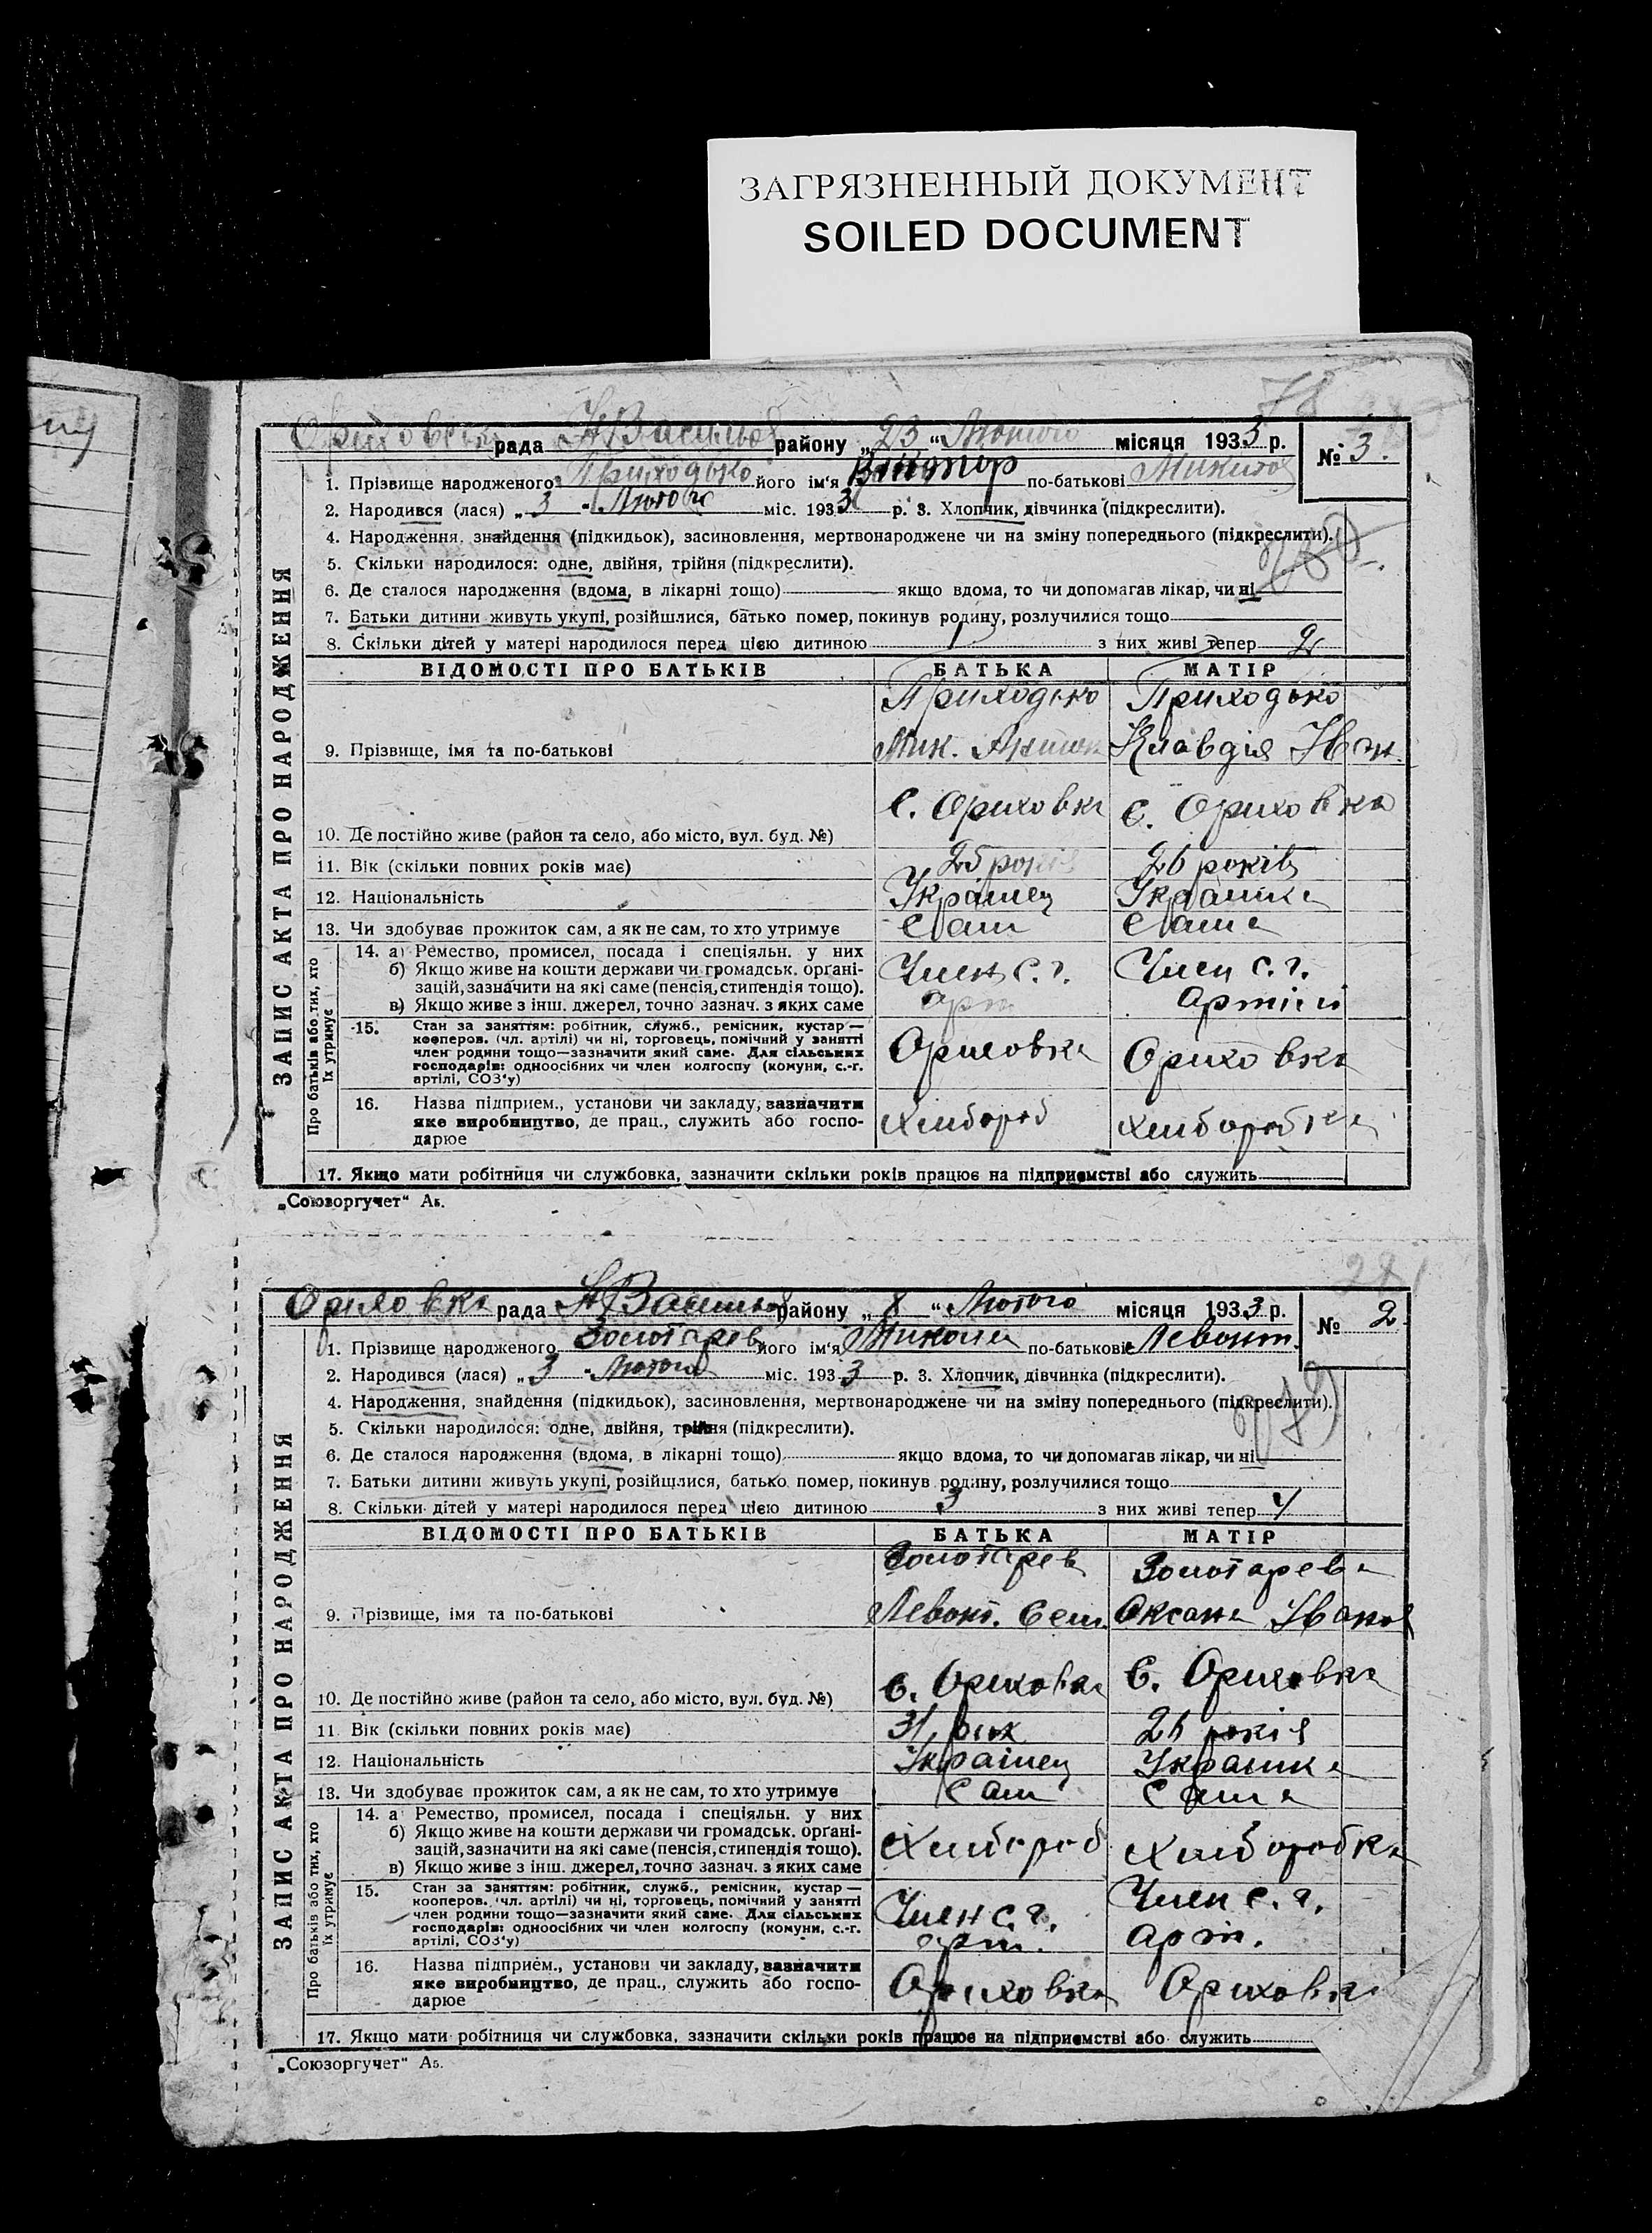 ЗАГРЯЗНЕННЫЙ ДОКУМЕНТ
SOILED DOCUMENT
78
рада Н Васильев району „23 “ Лютого місяця 1933 р. № 3.
1. Прізвище народженого Приходько його ім'я Виктор по-батькові Микитов
2. Народився (лася) „ 3 “ Лютого міс. 1933 р. 3. Хлопчик, дівчинка (підкреслити).
4. Народження, знайдення (підкидьок), засиновлення, мертвонароджене чи на зміну попереднього (підкреслити).
5. Скільки народилося: одне, двійня, трійня (підкреслити).
6. Де сталося народження (вдома, в лікарні тощо) якщо вдома, то чи допомагав лікар, чи ні
7. Батьки дитини живуть укупі, розійшлися, батько помер, покинув родину, розлучилися тощо
8. Скільки дітей у матері народилося перед цією дитиною 1 з них живі тепер 2
ВІДОМОСТІ ПРО БАТЬКІВ БАТЬКА МАТІР
Приходько Приходько
9. Прізвище, імя та по-батькові Мик. Клавдія Іван.
10. Де постійно живе (район та село, або місто, вул. буд. №) с. Ориховка с. Ориховка
11. Вік (скільки повних років має) 25 років 26 років
12. Національність Украінец Украинка
13. Чи здобуває прожиток сам, а як не сам, то хто утримує Сам Сама
14. а) Ремество, промисел, посада і спеціяльн. у них Член с. г. Член с. г.
б) Якщо живе на кошти держави чи громадськ. органі-
зацій, зазначити на які саме (пенсія, стипендія тощо). арт артіли
в) Якщо живе з інш. джерел, точно зазнач. з яких саме
15. Стан за заняттям: робітник, служб., ремісник, кустар—
кооперов. (чл. артілі) чи ні, торговець, помічний у занятті
член родини тощо—зазначити який саме. Для сільських Ориховка Ориховка
господарів: одноосібних чи член колгоспу (комуни, с.-г.
артілі, СОЗ'у)
16. Назва підприєм., установи чи закладу, зазначити
яке виробництво, де прац., служить або госпо- хлибороб хлиборобка
дарює
17. Якщо мати робітниця чи службовка, зазначити скільки років працює на підприємстві або служить
ЗАПИС АКТА ПРО НАРОДЖЕННЯ
Про батьків або тих, хто
їх утримує
„Союзоргучет“ А5.
Ориховка рада Н Васильев району „ 8 “ Лютого місяця 1933 р. № 2
1. Прізвище народженого Золотарев його ім'я Микола по-батькові Левонт.
2. Народився (лася) „ 3 “ Лютого міс. 1933 р. 3. Хлопчик, дівчинка (підкреслити).
4. Народження, знайдення (підкидьок), засиновлення, мертвонароджене чи на зміну попереднього (підкреслити).
5. Скільки народилося: одне, двійня, трійня (підкреслити).
6. Де сталося народження (вдома, в лікарні тощо) якщо вдома, то чи допомагав лікар, чи ні
7. Батьки дитини живуть укупі, розійшлися, батько помер, покинув родину, розлучилися тощо
8. Скільки дітей у матері народилося перед цією дитиною 3 з них живі тепер 4
ВІДОМОСТІ ПРО БАТЬКІВ БАТЬКА МАТІР
Золотарев Золотарева
9. Прізвище, імя та по-батькові Левонт. Сем. Оксана Іванов
10. Де постійно живе (район та село, або місто, вул. буд. №) с. Ориховка с. Ориховка
11. Вік (скільки повних років має) 31 рик 26 років
12. Національність Украінец Украинка
13. Чи здобуває прожиток сам, а як не сам, то хто утримує Сам Сама
14. а Ремество, промисел, посада і спеціяльн. у них
б) Якщо живе на кошти держави чи громадськ. органі- хлибороб хлиборобка
зацій, зазначити на які саме (пенсія, стипендія тощо).
в) Якщо живе з інш. джерел, точно зазнач. з яких саме
15. Стан за заняттям: робітник, служб., ремісник, кустар—
кооперов. (чл. артілі) чи ні, торговець, помічний у занятті Член с. г. Член с. г.
член родини тощо—зазначити який саме. Для сільських
господарів: одноосібних чи член колгоспу (комуни, с.-г. арт. арт.
артілі, СОЗ'у)
16. Назва підприєм., установи чи закладу, зазначити
яке виробництво, де прац., служить або госпо- Ориховка Ориховка
дарює
17. Якщо мати робітниця чи службовка, зазначити скільки років працює на підприємстві або служить
ЗАПИС АКТА ПРО НАРОДЖЕННЯ
Про батьків або тих, хто
їх утримує
„Союзоргучет“ А5.